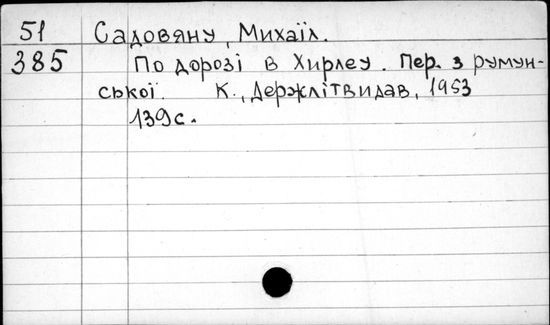 51 Садовяну, Михаїл.
385 По дорозі в Хирлеу. Пер. з румун-
ської. К., Держлітвидав, 1953
139с.